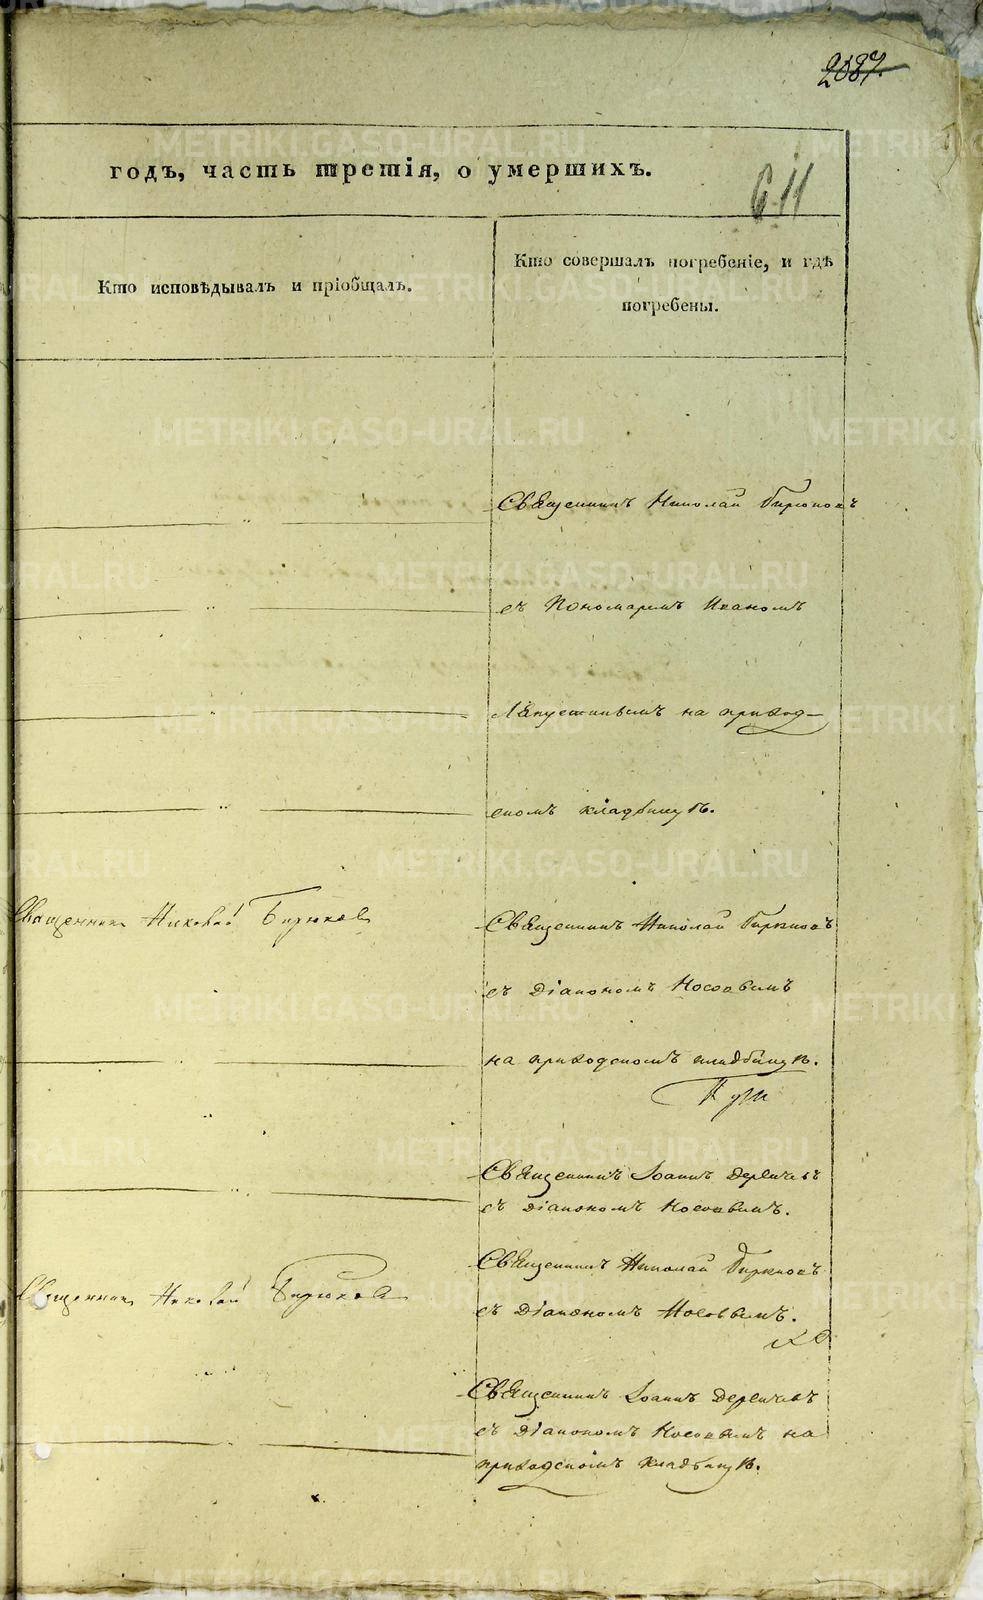 2087.
годъ, часть третія, о умершихъ.
611
Кто исповѣдывалъ и пріобщалъ.
Кто совершалъ погребеніе, и гдѣ
погребены.
Священникъ Николай Бирюковъ
съ Пономаремъ Иваномъ
на приход-
скомъ кладбищѣ.
Священникъ Николай Бирюковъ
Священникъ Николай Бирюковъ
съ Діакономъ Носовымъ
на приходскомъ кладбищѣ.
Священникъ Іоаннъ
съ Діакономъ Носовымъ.
Священникъ Николай Бирюковъ
Священникъ Николай Бирюковъ
съ Діакономъ Носовымъ.
Священникъ Іоаннъ
съ Діакономъ Носовымъ на
приходскомъ кладбищѣ.
METRIKI.GASO-URAL.RU